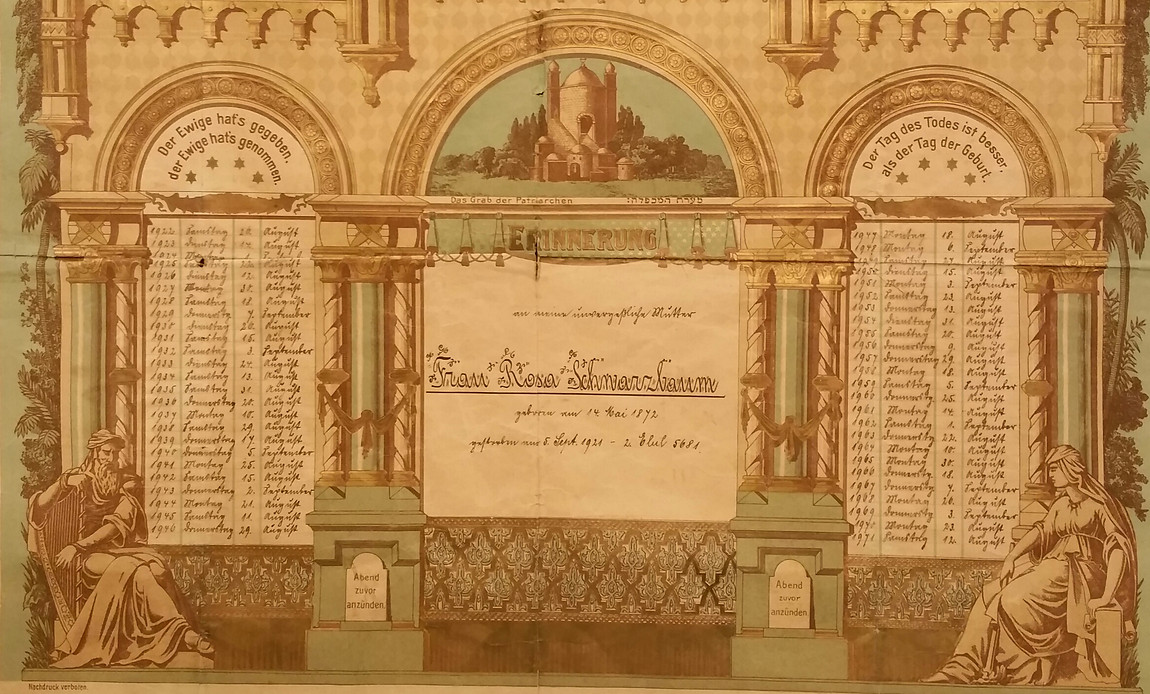 Der Ewige hat's gegeben,
der Ewige hat's genommen.
Das Grab der Patriarchen
מערת המכפלה:
Der Tag des Todes ist besser,
als der Tag der Geburt.
ERINNERUNG
an meine unvergeßliche Mutter
Frau Rosa Schwarzbaum
geboren am 14 Mai 1872
gestorben am 5 Sept. 1921 - 2. Elul 5681.
1922 Samstag 26. August
1923 Dienstag 14 August
1924
1925 Samstag August
1926 Dienstag 12. August
1927 30. August
1928 Samstag 18. August
1929 Donnerstag 7. September
1930 Dienstag 26. August
1931 Samstag 15. August
1932 Samstag 3. September
1933 Dienstag 24. August
1934 Samstag 13. August
1935 Samstag 31. August
1936 Donnerstag 20. August
1937 Montag 10. August
1938 Samstag 29. August
1939 Donnerstag 17. August
1940 Donnerstag 5. September
1941 Montag 25. August
1942 Samstag 15. August
1943 Donnerstag 2. September
1944 Montag 21. August
1945 Samstag 11. August
1946 Donnerstag 29. August
1947 Montag 18. August
Montag 6. September
27. August
Dienstag 15. August
1951 Montag 3. September
1952 Samstag 23. August
1953 Donnerstag 13. August
1954 Dienstag 31. August
1955 Samstag 20. August
1956 Donnerstag 9. August
1957 Donnerstag 29. August
1958 Montag 18. August
1959 Samstag 5. September
1960 Donnerstag 25. August
1961 Montag 14. August
1962 Samstag 1. September
1963 Donnerstag 22. August
1964 Montag 10. August
1965 Montag 30. August
1966 Donnerstag 18. August
1967 Donnerstag 7. September
1968 Montag 26. August
1969 Donnerstag 3. September
Montag 23. August
1971 Samstag 12. August
Abend
zuvor
anzünden.
Abend
zuvor
anzünden.
Nachdruck verboten.